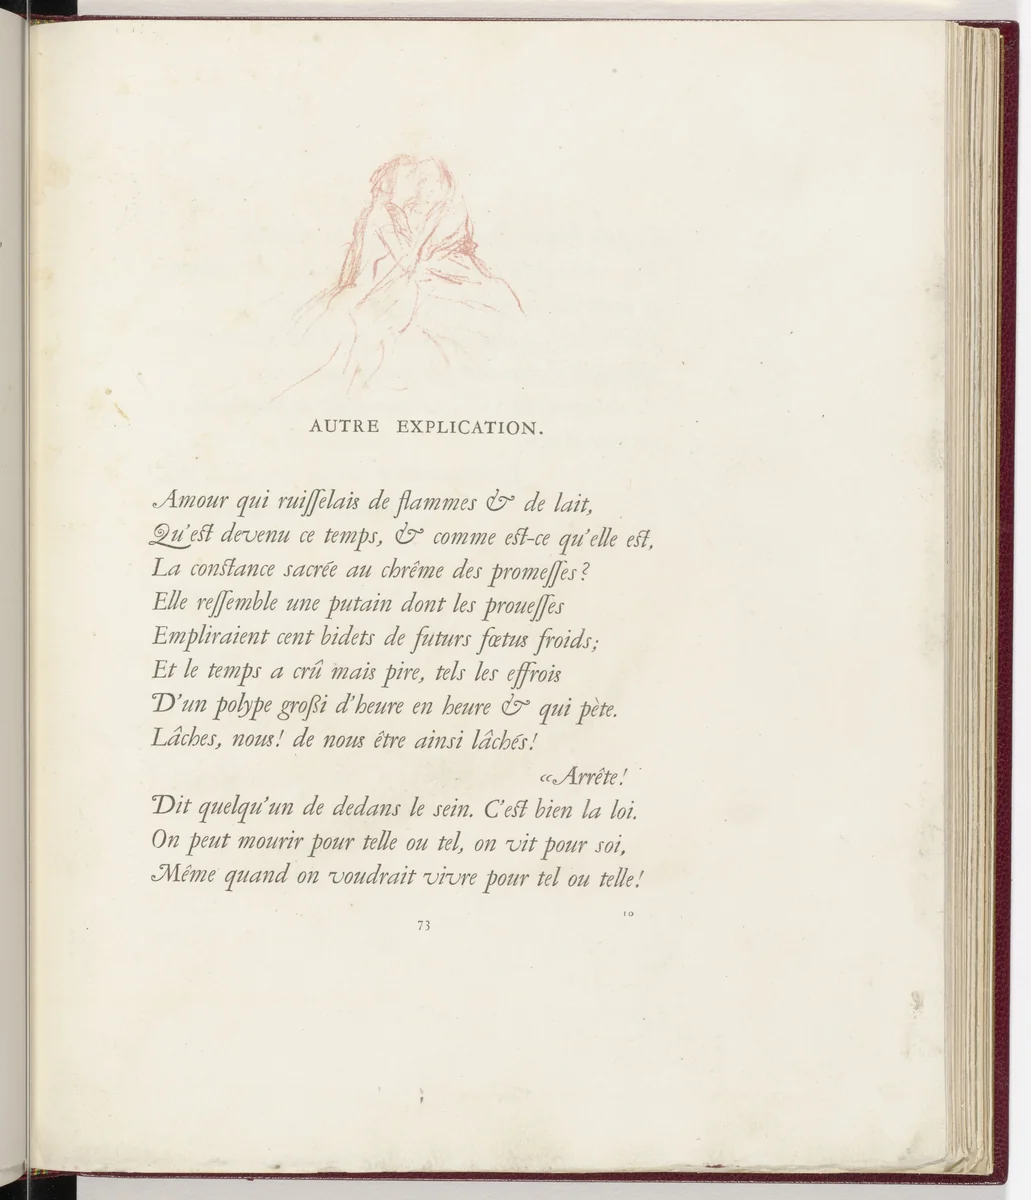 AUTRE EXPLICATION.
Amour qui ruiſſelais de flammes & de lait,
Qu'eſt devenu ce temps, & comme eſt-ce qu'elle eſt,
La conſtance sacrée au chrême des promeſſes?
Elle reſſemble une putain dont les proueſſes
Empliraient cent bidets de futurs fœtus froids;
Et le temps a crû mais pire, tels les effrois
D'un polype groſsi d'heure en heure & qui pète.
Lâches, nous! de nous être ainsi lâchés!
«Arrête!
Dit quelqu'un de dedans le sein. C'eſt bien la loi.
On peut mourir pour telle ou tel, on vit pour soi,
Même quand on voudrait vivre pour tel ou telle!
73
10